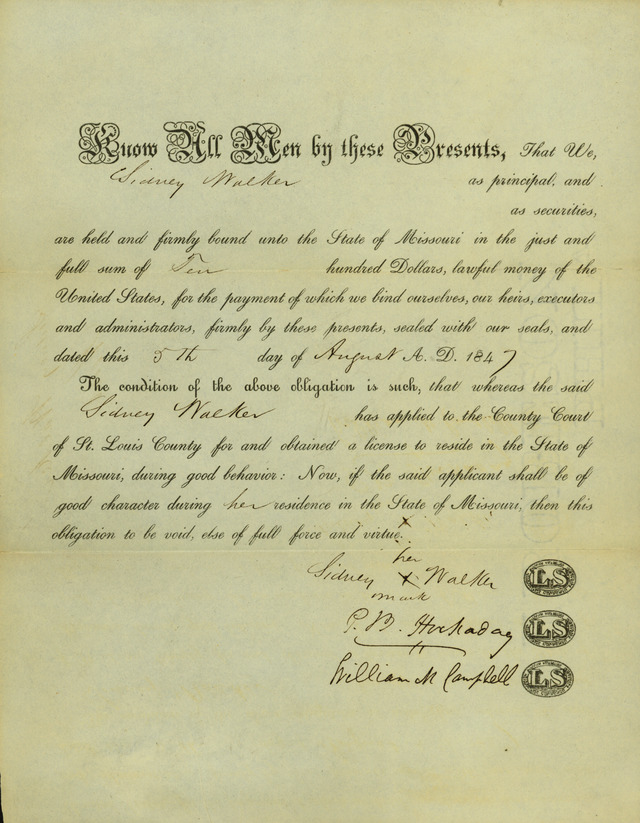 Know All Men by these Presents, That We,
Sidney Walker as principal, and
as securities,
are held and firmly bound unto the State of Missouri in the just and
full sum of Ten hundred Dollars, lawful money of the
United States, for the payment of which we bind ourselves, our heirs, executors
and administrators, firmly by these presents, sealed with our seals, and
dated this 5th day of August A. D. 1847
The condition of the above obligation is such, that whereas the said
Sidney Walker has applied to the County Court
of St. Louis County for and obtained a license to reside in the State of
Missouri, during good behavior: Now, if the said applicant shall be of
good character during her residence in the State of Missouri, then this
obligation to be void, else of full force and virtue.
her
Sidney x Walker LS
mark
Hockaday LS
William M Campbell LS